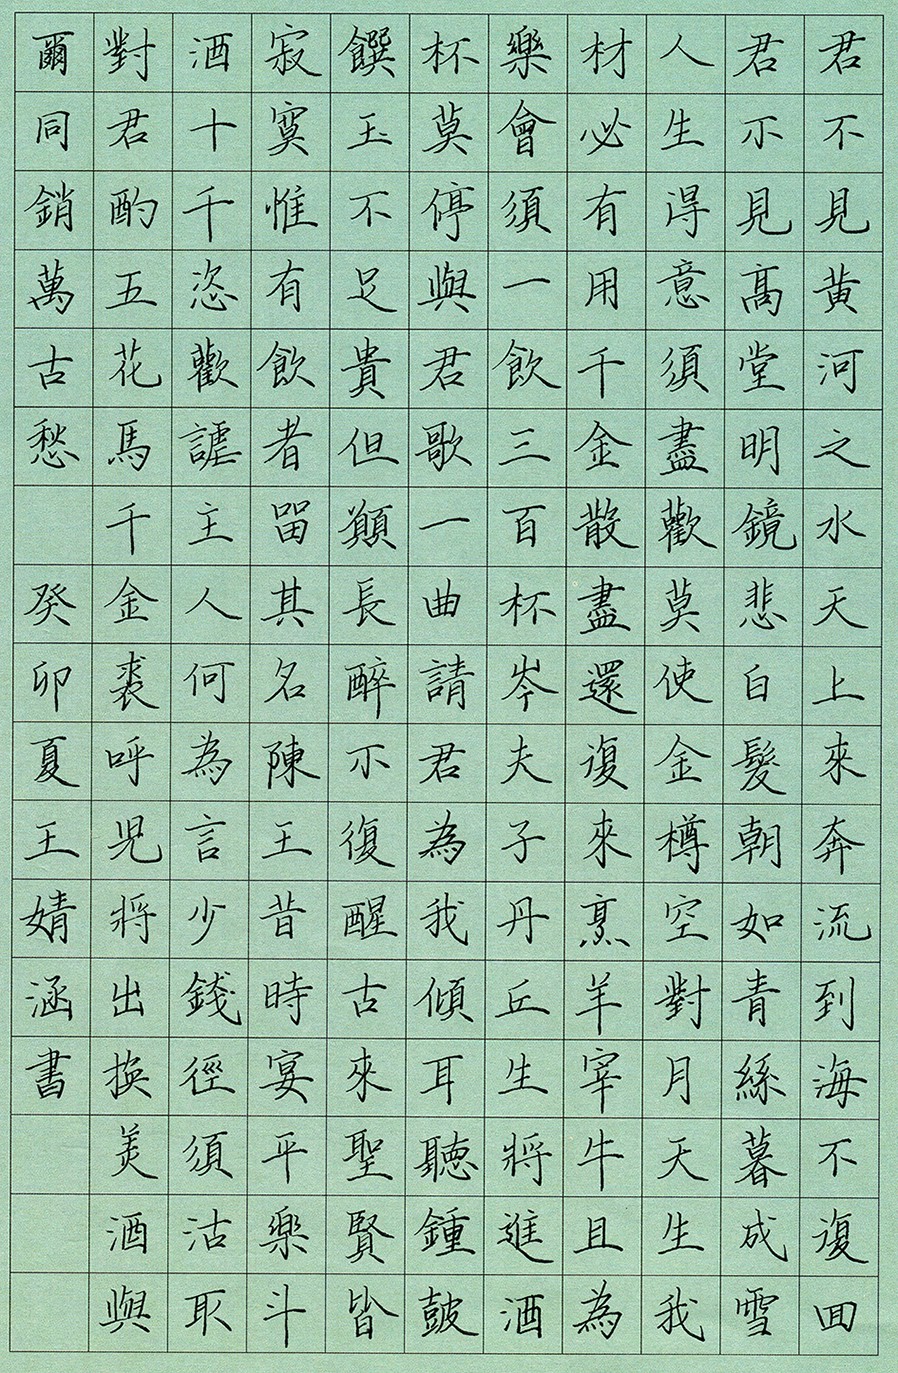 君不見黃河之水天上來奔流到海不復回
君不見高堂明鏡悲白髮朝如青絲暮成雪
人生得意須盡歡莫使金樽空對月天生我
材必有用千金散盡還復來烹羊宰牛且為
樂會須一飲三百杯岑夫子丹丘生將進酒
杯莫停與君歌一曲請君為我傾耳聽鍾鼓
饌玉不足貴但願長醉不復醒古來聖賢皆
寂寞惟有飲者留其名陳王昔時宴平樂斗
酒十千恣歡謔主人何為言少錢徑須沽取
對君酌五花馬千金裘呼兒將出換美酒與
爾同銷萬古愁 癸卯夏王婧涵書